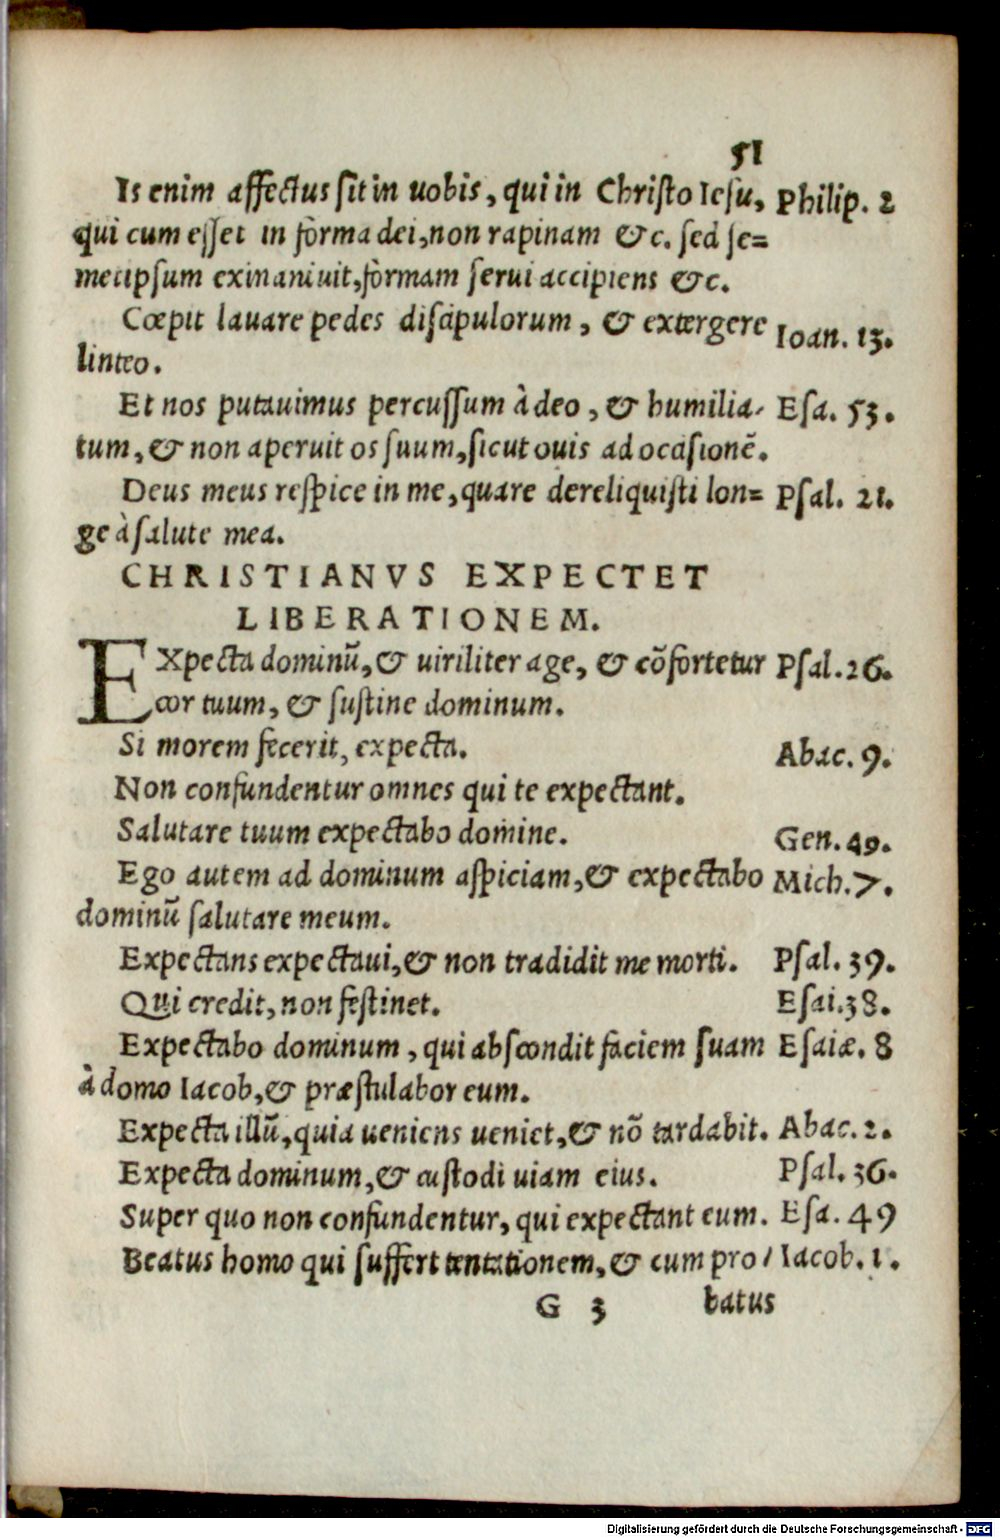 51
Is enim affectus sit in uobis, qui in Christo Iesu, Philip. 2
qui cum esset in forma dei, non rapinam &c. sed se=
metipsum exinaniuit, formam serui accipiens &c.
Cœpit lauare pedes discipulorum, & extergere Ioan. 13.
linteo.
Et nos putauimus percussum à deo, & humilia- Esa. 53.
tum, & non aperuit os suum, sicut ouis ad ocasionē.
Deus meus respice in me, quare dereliquisti lon= Psal. 21.
ge à salute mea.
CHRISTIANVS EXPECTET
LIBERATIONEM.
EXpecta dominū, & uiriliter age, & cōfortetur Psal. 26.
cor tuum, & sustine dominum.
Si morem fecerit, expecta. Abac. 9.
Non confundentur omnes qui te expectant.
Salutare tuum expectabo domine. Gen. 49.
Ego autem ad dominum aspiciam, & expectabo Mich. 7.
dominū salutare meum.
Expectans expectaui, & non tradidit me morti. Psal. 39.
Qui credit, non festinet. Esai. 38.
Expectabo dominum, qui abscondit faciem suam Esaiæ. 8
à domo Iacob, & præstulabor eum.
Expecta illū, quia ueniens ueniet, & nō tardabit. Abac. 2.
Expecta dominum, & custodi uiam eius. Psal. 36.
Super quo non confundentur, qui expectant eum. Esa. 49
Beatus homo qui suffert tentationem, & cum pro/ Iacob. 1.
G 3 batus
Digitalisierung gefördert durch die Deutsche Forschungsgemeinschaft - DFG